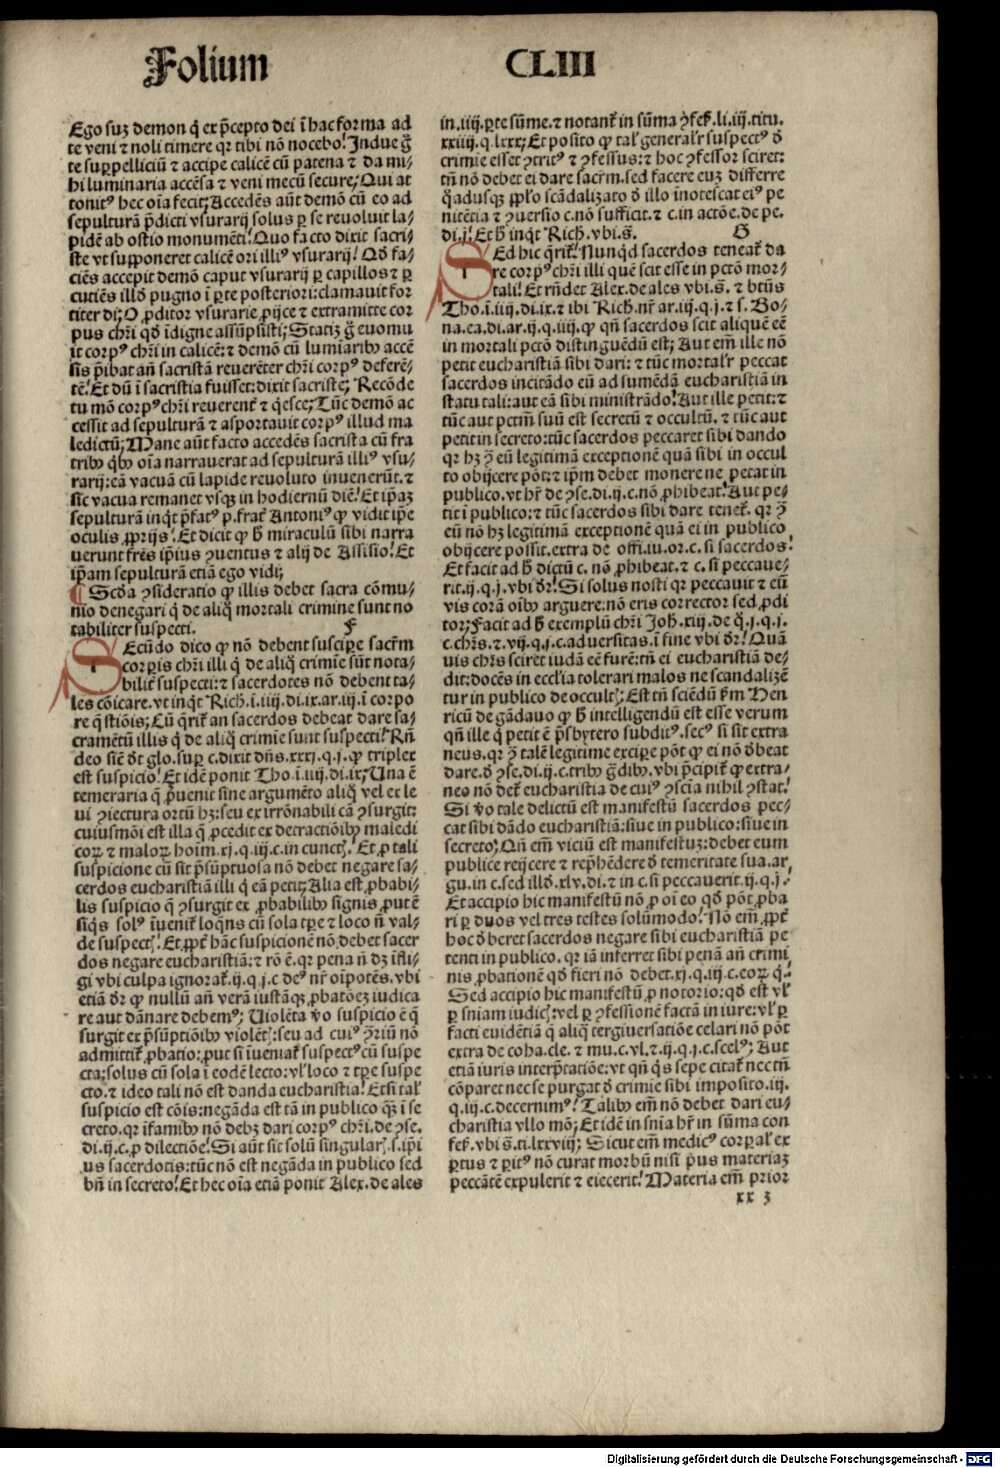 Folium CLIII
Ego suʒ demon q̃ ex p̃cepto dei ĩ hac forma ad
te veni ⁊ noli timere qꝛ tibi nõ nocebo! Indue g̃
te suppelliciũ ⁊ accipe calicẽ cũ patena ⁊ da mi⸗
hi luminaria accẽsa ⁊ veni mecũ secure; Qui at
tonitꝰ hec oĩa fecit; Accedẽs aũt demõ cũ eo ad
sepulturã p̃dicti vsurarij solus ꝑ se reuoluit la⸗
pidẽ ab ostio monumẽti! Quo facto dixit sacri⸗
ste vt supponeret calicẽ ori illiꝰ vsurarij! Qd̃ fa⸗
ciẽs accepit demõ caput vsurarij ꝑ capillos ⁊ ꝑ
cutiẽs illd̃ pugno ĩ ꝑte posteriori: clamauit for
titer di; O ꝓditor vsurarie ꝓijce ⁊ extramitte cor
pus chr̃i qd̃ ĩdigne assũpsisti; Statiʒ g̃ euomu
it corpꝰ chr̃i in calicẽ: ⁊ demõ cũ lumiaribꝰ accẽ
sis p̃ibat añ sacristã reuerẽter chr̃i corpꝰ deferẽ⸗
tẽ! Et dũ ĩ sacristia fuisset: dixit sacriste; Recõde
tu mõ corpꝰ chr̃i reuerent̃ ⁊ q̃esce; Tũc demõ ac
cessit ad sepulturã ⁊ asportauit corpꝰ illud ma
ledictũ; Mane aũt facto accedẽs sacrista cũ fra
tribꝰ q̃bꝰ oĩa narrauerat ad sepulturã illiꝰ vsu⸗
rarij: eã vacuã cũ lapide reuoluto inuenerũt. ⁊
sic̃ vacua remanet vsqʒ in hodiernũ diẽ! Et ip̃aʒ
sepulturã inq̃t p̃fatꝰ p. frat̃ Antoniꝰ ꝙ vidit ip̃e
oculis ꝓprijs! Et dicit ꝙ h̃ miraculũ sibi narra
uerunt fr̃es ip̃ius ꝯuentus ⁊ alij de Assisio! Et
ip̃am sepulturã etiã ego vidi;
¶ Scd̃a ꝯsideratio ꝙ illis debet sacra cõmu⸗
nio denegari q̃ de aliq̃ mortali crimine sunt no
tabiliter suspecti. F
SEcũdo dico ꝙ nõ debent suscipe sacr̃m
corꝑis chr̃i illi q̃ de aliq̃ crimie sũt nota⸗
bilit̃ suspecti: ⁊ sacerdotes nõ debent ta⸗
les cõicare. vt inq̃t Rich. ĩ. iiij. di. ix. ar. iij. ĩ corpo
re q̃stiõis; Cũ q̃rit̃ an sacerdos debeat dare sa⸗
cramẽtũ illis q̃ de aliq̃ crimie sunt suspecti! Rñ
deo sic̃ d̃t glo. suꝑ c. dixit dñs. xxxij. q. j. ꝙ triplex
est suspicio! Et idẽ ponit Tho. ĩ. iiij. di. ix; Una ẽ
temeraria q̃ ꝓuenit sine argumẽto aliq̃ vel ex le
ui ꝯiectura ortũ hʒ: seu ex irrõnabili cã ꝯsurgit:
cuiusmõi est illa q̃ ꝓcedit ex detractiõibꝰ maledi
coꝝ ⁊ maloꝝ hoĩm. xj. q. iij. c. in cunct̃. Et ꝓ tali
suspicione cũ sit p̃sũptuosa nõ debet negare sa⸗
cerdos eucharistiã illi q̃ eã petit; Alia est ꝓbabi⸗
lis suspicio q̃ ꝯsurgit ex ꝓbabilibꝰ signis ꝓut ẽ
siq̃s solꝰ ĩuenit̃ loq̃ns cũ sola tꝑe ⁊ loco ñ val⸗
de suspect̃! Et ꝓpt̃ hãc suspicionẽ nõ debet sacer
dos negare eucharistiã: ⁊ rõ ẽ. qꝛ pena ñ dʒ ĩfli⸗
gi vbi culpa ignorat̃. ij. q. j. c. deꝰ nr̃ oĩpotẽs. vbi
etiã d̃r ꝙ nullũ añ verã iustãqʒ ꝓbatõeʒ iudica
re aut dãnare debemꝰ; Uiolẽta v̓o suspicio ẽ q̃
surgit ex p̃sũptiõibꝰ violẽt̃: seu ad cuiꝰ ꝯriũ nõ
admittit̃ ꝓbatio: ꝓut si ĩueniat̃ suspectꝰ cũ suspe
cta: solus cũ sola ĩ eodẽ lecto: vl̃ loco ⁊ tꝑe suspe
cto. ⁊ ideo tali nõ est danda eucharistia! Et si tal̃
suspicio est cõis: negãda est tã in publico q̃ʒ ĩ se
creto. qꝛ ĩfamibꝰ nõ debʒ dari corpꝰ chr̃i. de ꝯse.
di. ij. c. ꝓ dilectiõe! Si aũt sic̃ solũ singular̃. s. ip̃i
us sacerdotis: tũc nõ est negãda in publico sed
bñ in secreto! Et hec oĩa etiã ponit Alex. de ales
in. iiij. ꝑte sũme. ⁊ notant̃ in sũma ꝯfes̃. li. iij. titu.
xxiiij. q. lxxx; Et posito ꝙ tal̃ general̃r suspectꝰ d̓
crimie esset ꝯtritꝰ ⁊ ꝯfessus: ⁊ hoc ꝯfessor sciret:
tñ nõ debet ei dare sacr̃m. sed facere euʒ differre
q̃adusqʒ ꝓp̃lo scãdalizato d̓ illo ĩnotescat eiꝰ pe
nitẽtia ⁊ ꝯuersio c. nõ sufficit. ⁊ c. in actõe. de pe.
di. j! Et h̃ inq̃t Rich. vbi. s̃. G
SEd hic q̃rit̃! Nunq̃d sacerdos teneat̃ da
re corpꝰ chr̃i illi quẽ scit esse in pctõ mor⸗
tali! Et rñdet Alex. de ales vbi. s̃. ⁊ btũs
Tho. ĩ. iiij. di. ix. ⁊ ibi Rich. nr̃ ar. iij. q. j. ⁊ s. Bo⸗
na. ea. di. ar. ij. q. iiij. ꝙ qñ sacerdos scit aliquẽ eẽ
in mortali pctõ distinguẽdũ est; Aut em̃ ille nõ
petit eucharistiã sibi dari: ⁊ tũc mortal̃r peccat
sacerdos incitãdo eũ ad sumẽdã eucharistiã in
statu tali: aut eã sibi ministrãdo! Aut ille petit: ⁊
tũc aut pctm̃ suũ est secretũ ⁊ occultũ. ⁊ tũc aut
petit in secreto: tũc sacerdos peccaret sibi dando
qꝛ hʒ ꝯ̃ eũ legitimã exceptionẽ quã sibi in occul
to obijcere põt: ⁊ ip̃m debet monere ne petat in
publico. vt hr̃ de ꝯse. di. ij. c. nõ ꝓhibeat! Aut pe⸗
tit ĩ publico: ⁊ tũc sacerdos sibi dare tenet̃. qꝛ ꝯ̃
eũ nõ hʒ legitimã exceptionẽ quã ei in publico
obijcere possit. extra de offi. iu. or. c. si sacerdos!
Et facit ad h̃ dictũ c. nõ ꝓhibeat. ⁊ c. si peccaue⸗
rit. ij. q. j. vbi d̃r! Si solus nosti qꝛ peccauit ⁊ eũ
vis corã oĩbꝰ arguere: nõ eris corrector sed ꝓdi
tor; Facit ad h̃ exemplũ chr̃i Joh. xiij. de q̃. j. q. j.
c. chr̃s. ⁊. vij. q. j. c. aduersitas. ĩ fine vbi d̃r! Quã
uis chr̃s sciret iudã eẽ furẽ: tñ ei eucharistiã de⸗
dit: docẽs in ecclĩa tolerari malos ne scandalizẽ
tur in publico de occult̃; Est tñ sciẽdũ s̃m Hen
ricũ de gãdauo ꝙ h̃ intelligendũ est esse verum
qñ ille q̃ petit ẽ p̃sbytero subditꝰ. secꝰ si sit extra
neus. qꝛ ꝯ̃ talẽ legitime exciꝑe põt ꝙ ei nõ d̓beat
dare. d̓ ꝯse. di. ij. c. tribꝰ g̃dibꝰ. vbi p̃cipit̃ ꝙ extra⸗
neo nõ det̃ eucharistia de cuiꝰ ꝯscia nihil ꝯstat!
Si v̓o tale delictũ est manifestũ sacerdos pec⸗
cat sibi dãdo eucharistiã: siue in publico: siue in
secreto; Qñ em̃ viciũ est manifestuʒ: debet eum
publice reijcere ⁊ rep̃hẽdere d̓ temeritate sua. ar.
gu. in c. sed illd̃. xlv. di. ⁊ in c. si peccauerit. ij. q. j.
Et accipio hic manifestũ nõ ꝓ oĩ eo qd̃ põt ꝓba
ri ꝑ duos vel tres testes solũmodo! Nõ em̃ ꝓpt̃
hoc d̓beret sacerdos negare sibi eucharistiã pe
tenti in publico. qꝛ iã inferret sibi penã añ crimi
nis ꝓbationẽ qd̃ fieri nõ debet. xj. q. iij. c. eoꝝ q̃.
Sed accipio hic manifestũ ꝓ notorio: qd̃ est vl̃
ꝑ sniam iudic̃: vel ꝑ ꝯfessionẽ factã in iure: vl̃ ꝑ
facti euidẽtiã q̃ aliq̃ tergiuersatiõe celari nõ põt
extra de coha. cle. ⁊ mu. c. vl. ⁊. ij. q. j. c. scelꝰ; Aut
etiã iuris interp̃tatiõe: vt qñ q̃s sepe citat̃ nec tñ
cõparet nec se purgat d̓ crimie sibi imposito. iij.
q. iij. c. decernimꝰ! Talibꝰ em̃ nõ debet dari eu⸗
charistia vllo mõ; Et idẽ in snia hr̃ in sũma con
fes̃. vbi. s̃. ti. lxxviij; Sicut em̃ medicꝰ corꝑal̃ ex
ꝑtus ⁊ ꝑitꝰ nõ curat morbũ nisi p̃us materiaʒ
peccãtẽ expulerit ⁊ eiecerit! Materia em̃ prior
xx 3
Digitalisierung gefördert durch die Deutsche Forschungsgemeinschaft - DFG